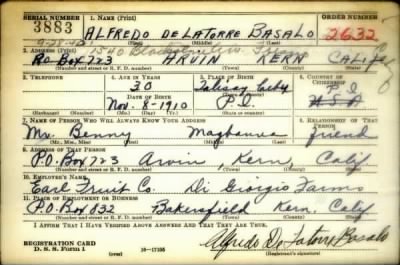 SERIAL NUMBER 1. NAME (Print) ORDER NUMBER
3883 ALFREDO DE LATORRE BASALO 2632
(First) (Middle) (Last)
9-28-42 1540
P.O. Box 723 ARVIN KERN CALIF
(Number and street or R. F. D. number) (Town) (County) (State)
3. TELEPHONE 4. AGE IN YEARS 5. PLACE OF BIRTH 6. COUNTRY OF CITIZENSHIP
30 City P.I.
DATE OF BIRTH (Town or county)
Nov. 8-1910 P.I. U.S.A
(Exchange) (Number) (Mo.) (Day) (Yr.) (State or country)
7. NAME OF PERSON WHO WILL ALWAYS KNOW YOUR ADDRESS 8. RELATIONSHIP OF THAT PERSON
Mr. Benny friend
(Mr., Mrs., Miss) (First) (Middle) (Last)
9. ADDRESS OF THAT PERSON
P.O. Box 723 Arvin, Kern, Calif
(Number and street or R. F. D. number) (Town) (County) (State)
10. EMPLOYER'S NAME
Earl Fruit Co. Di Giorgio Farms
11. PLACE OF EMPLOYMENT OR BUSINESS
P.O. Box 832 Bakersfield Kern, Calif
(Number and street or R. F. D. number) (Town) (County) (State)
I AFFIRM THAT I HAVE VERIFIED ABOVE ANSWERS AND THAT THEY ARE TRUE.
REGISTRATION CARD
D. S. S. Form 1 (over) 16-17105 Alfredo De Latorre Basalo
(Registrant's signature)